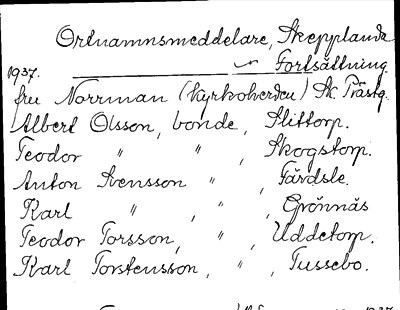 Ortnamnsmeddelare, Skepplanda
Fortsättning.
1937.
fru Norrman (Kyrkoherden) Sk. Prästg.
Albert Olsson, bonde, Slittorp.
Teodor " " , Skogstorp.
Anton Svensson " , Färdsle.
Karl " , " , Grönnäs
Teodor Torsson, " , Uddetorp.
Karl Torstensson, " , Tussebo.